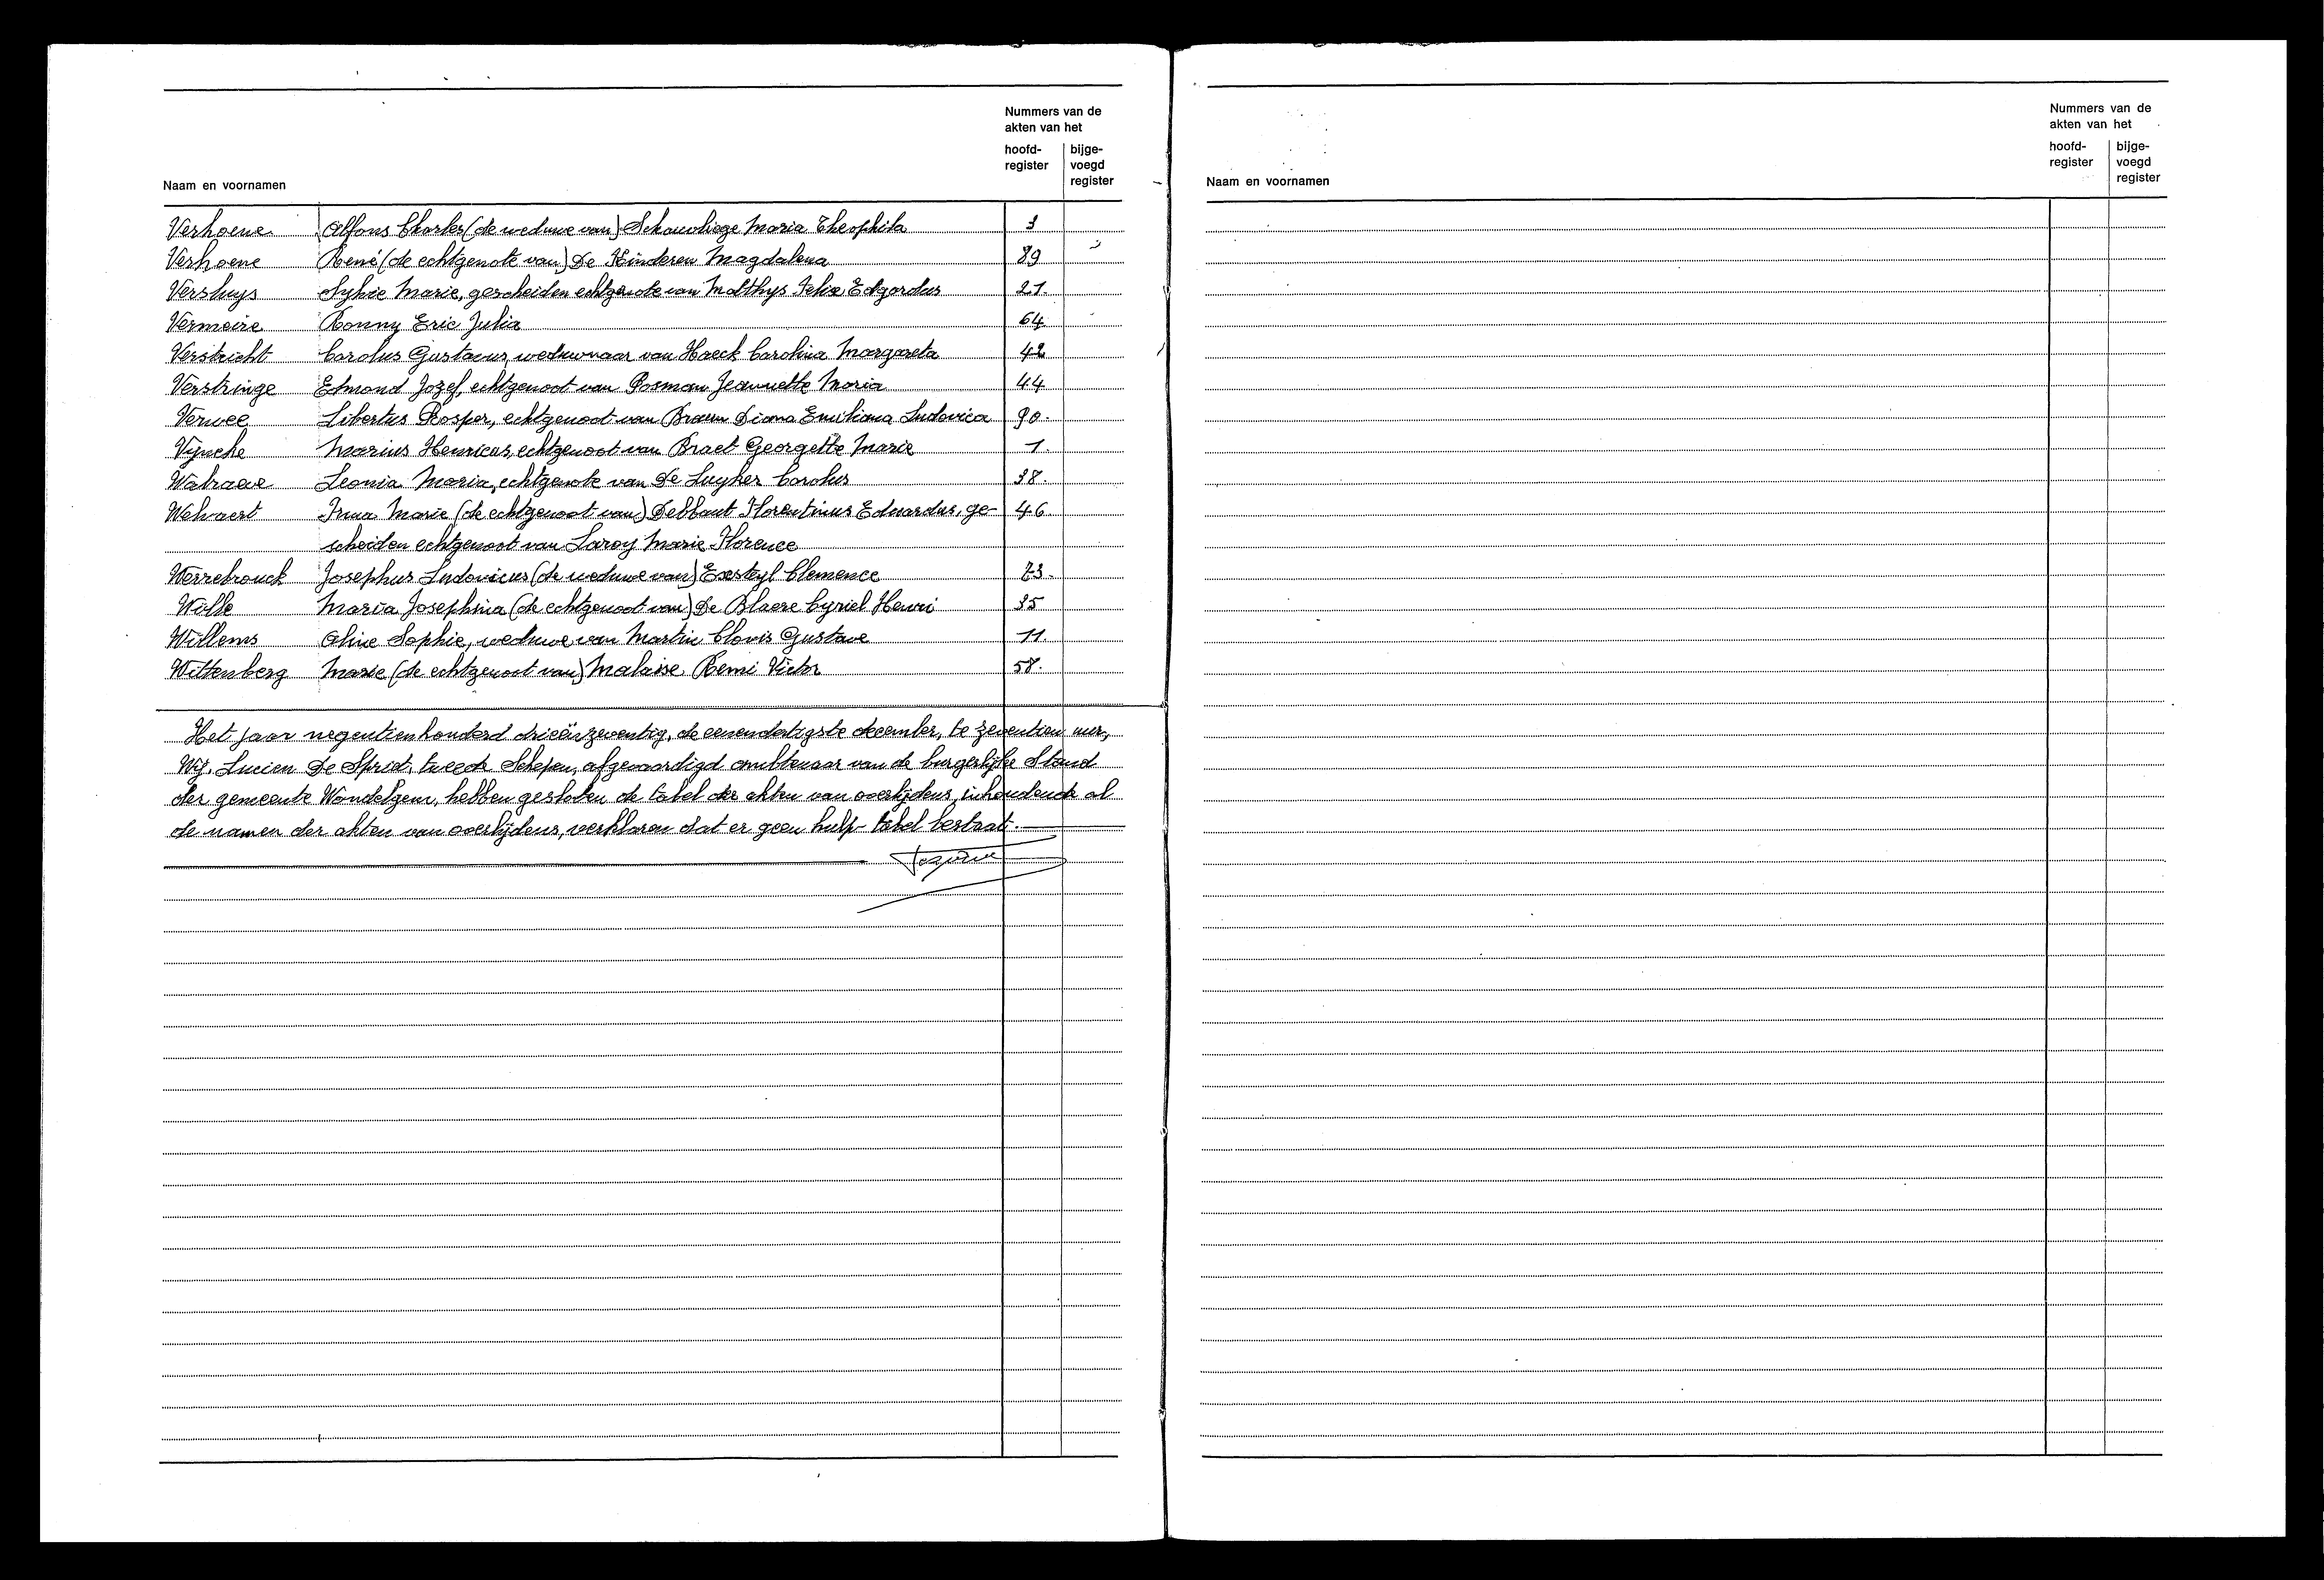 Nummers van de
akten van het
hoofd-
register
bijge-
voegd
register
Naam en voornamen
Verhoene Alfons Charles (de weduwe van) Schauvliege Maria Theophila 3
Verhoene René (de echtgenote van) De Kinderen Magdalena 89
Versluys Sylvie Marie, gescheiden echtgenote van Matthys Felix Edgardus 21.
Vermeire Ronny Eric Julia 64
Verstricht Carolus Gustavus, weduwnaar van Haeck Carolina Margareta 42
Verstringe Edmond Jozef, echtgenoot van Posman Jeannette Maria 44
Verwee Libertus Prosper, echtgenoot van Braem Diana Emiliana Ludovica 90.
Vijncke Marius Henricus, echtgenoot van Braet Georgette Marie 1.
Walraeve Leonia Maria, echtgenote van De Luyker Carolus 38.
Welvaert Irma Marie (de echtgenoot van) Debbaut Florentinus Eduardus, ge- 46.
scheiden echtgenoot van Laroy Marie-Florence
Werrebrouck Josephus Ludovicus (de weduwe van) Exsteyl Clemence 73.
Wille Maria Josephina (de echtgenoot van) De Blaere Cyriel Henri 35
Willems Aline Sophie, weduwe van Martin Clovis Gustave 11.
Wittenberg Marie (de echtgenoot van) Malaise Remi Victor 58.
Het jaar negentienhonderd drieënzeventig, de eenendertigste december, te zeventien uur,
Wij, Lucien De Spriet, tweede Schepen, afgevaardigd ambtenaar van de burgerlijke Stand
der gemeente Wondelgem, hebben gesloten de tafel der akten van overlijdens, inhoudende al
de namen der akten van overlijdens, verklaren dat er geen hulp-tafel bestaat.
Nummers van de
akten van het
hoofd-
register
bijge-
voegd
register
Naam en voornamen